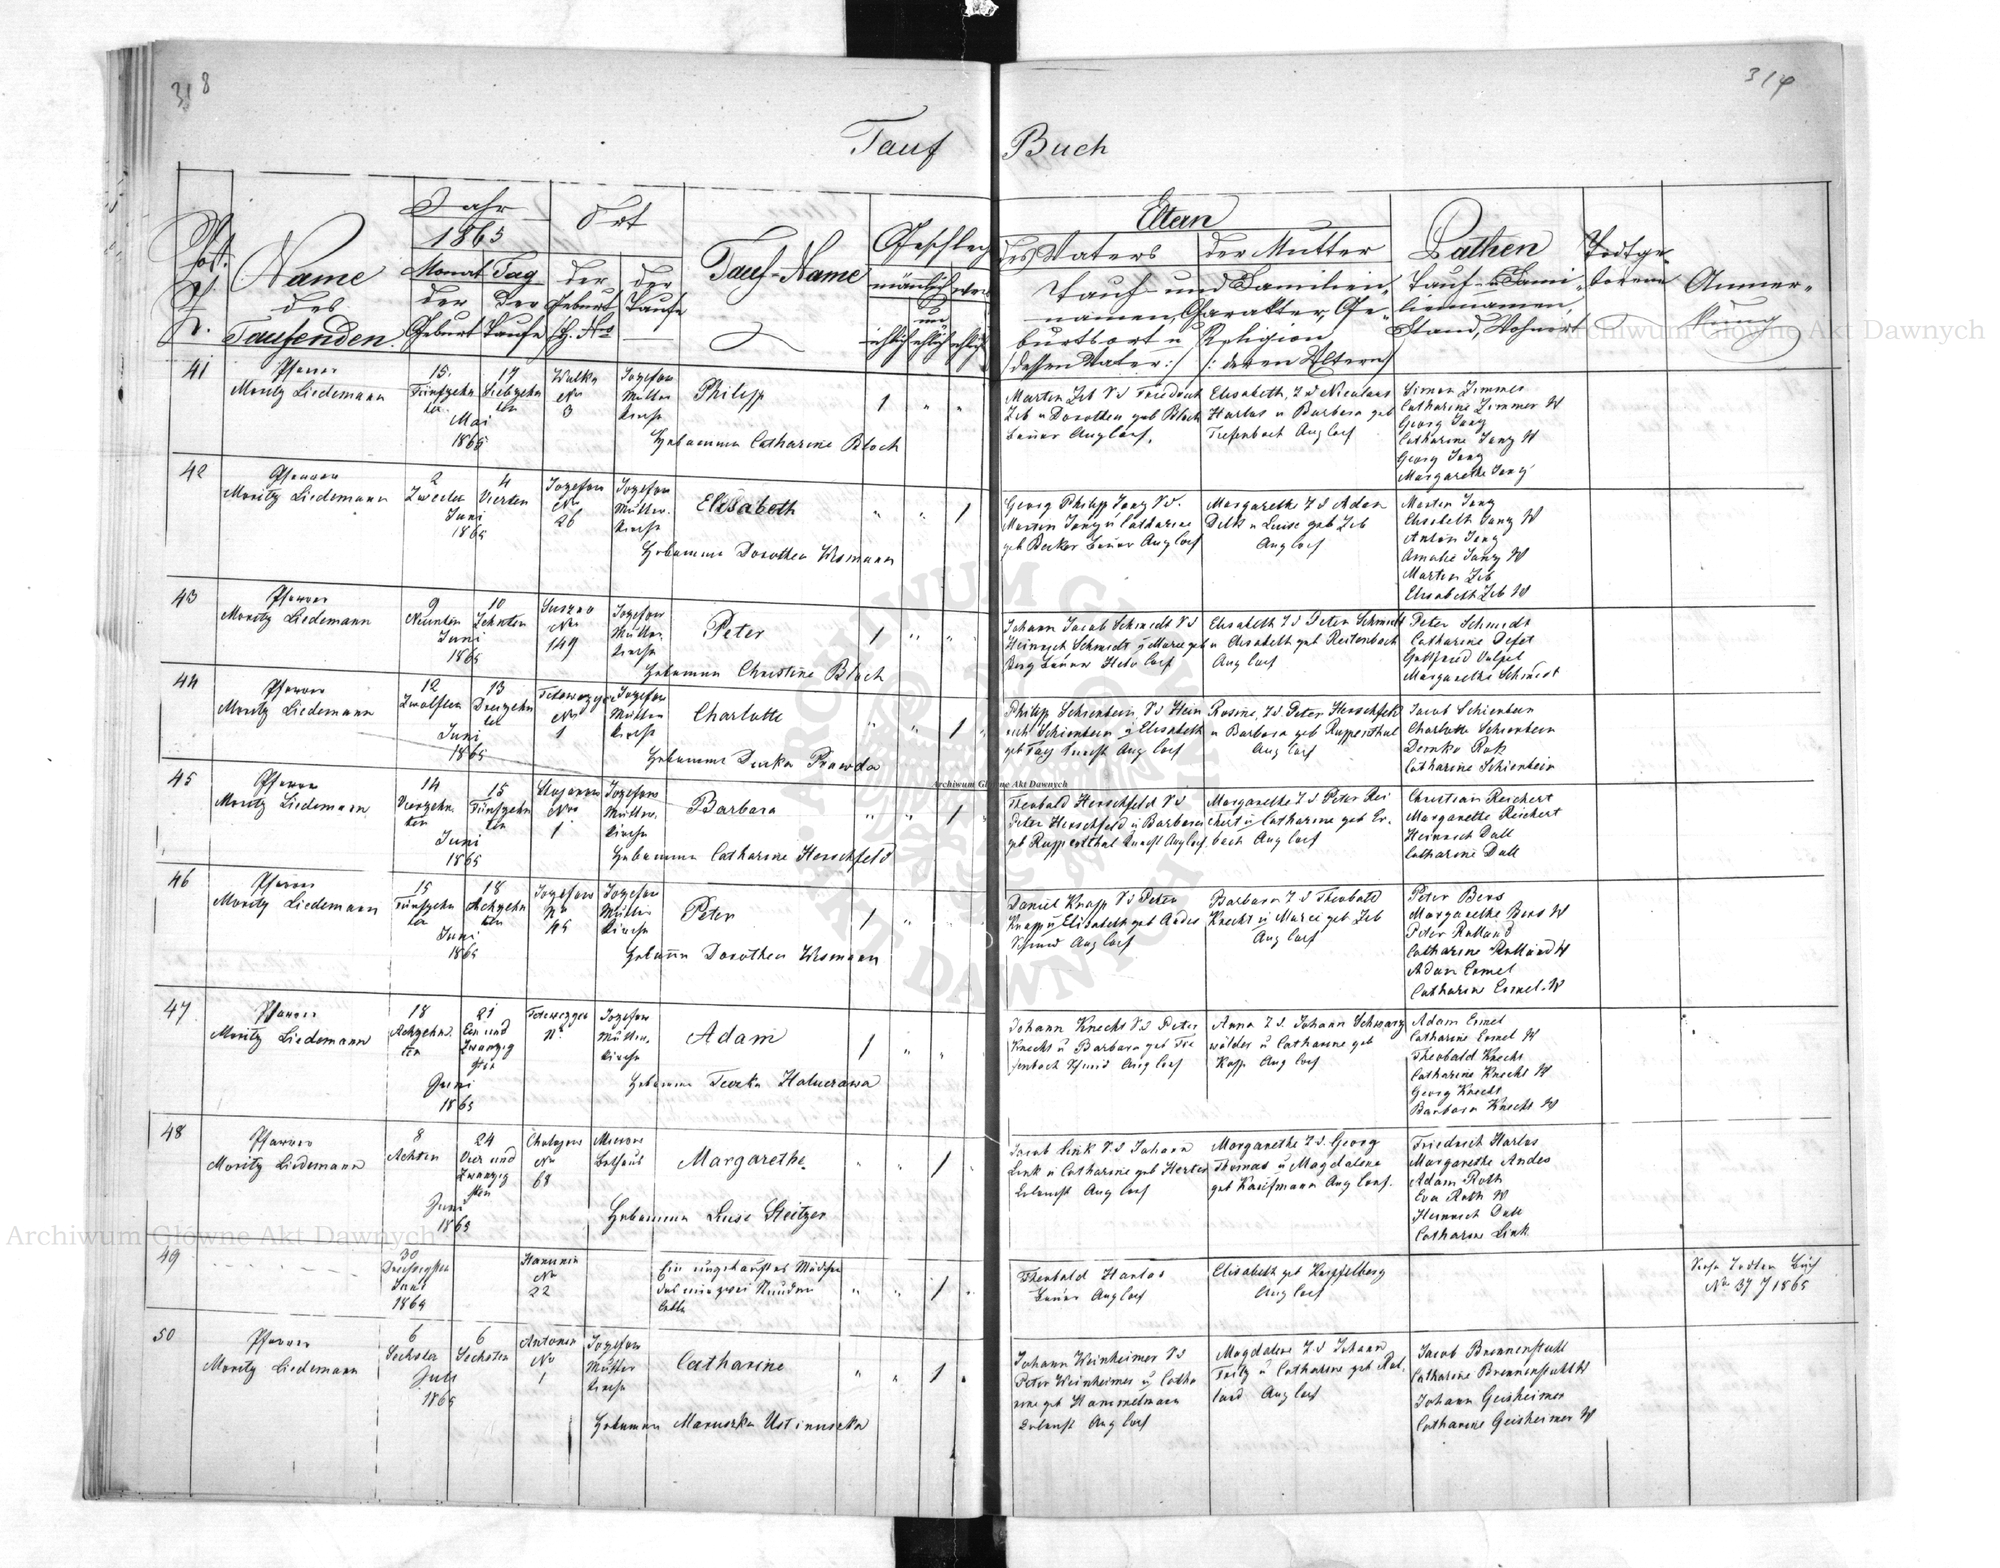 318
314
Tauf Buch
Jahr
1865
Ort
Geschlech
Eltern
Post
Name
des
Taufenden
Monat Tag
der der
Geburt Taufe
der
Geburt
H. No
der
Taufe
Tauf-Name
männlich
ehlich
des Vaters
der Mutter
Tauf- und Familien-
namen, Charakter, Ge-
burtsort u Religion
/dessen Vater:/ /:deren Eltern/
Pathen
Tauf- u Fami-
liennamen,
Stand, Wohnort
Todtge-
borene
Anmer-
kung
41
Pfarrer
Moritz Liedemann
15.
Fünfzehn
ten
17
Siebzehn
ten
Mai
1865
Wulka
No
3
Jozefow
Mutter
kirche
Philipp
1 " "
Hebamme Catharine Bloch
Martin Zeb
Zeb u Dorothea geb Bloch
Bauer Aug Conf.
Elisabeth, T d Nicolaus
Harlos u Barbara geb
Tiefenbach Aug Conf
Simon Zimmer
Catharine Zimmer W
Georg Jung
Catharine Jung W
Georg Jung
Margarethe Jung
42
Pfarrer
Moritz Liedemann
2
Zweiten
4
Vierten
Juni
1865
Jozefow
No
26
Jozefow
Mutter-
kirche
Elisabeth
" " 1
Hebamme Dorothea Wismann
Georg Philipp Jung S d.
Martin Jung u Catharine
geb Becker Bauer Aug Conf
Margarethe T d Adam
Delk u Luise geb Zeb
Aug Conf
Martin Jung
Elisabeth Jung W
Anton Jung
Amalie Jung W
Martin Zeb
Elisabeth Zeb W
43
Pfarrer
Moritz Liedemann
9
Neunten
10
Zehnten
Juni
1865
Suszno
No
149
Jozefow
Mutter-
kirche
Peter
1 " "
Hebamme Christine Bloch
Johann Jacob Schmidt S d
Heinrich Schmidt u Marie geb
Berg Bauer Helv Conf
Elisabeth T d Peter Schmidt
u Elisabeth geb Reitenbach
Aug Conf
Peter Schmidt
Catharine
Gottfried
Margarethe Schmidt
44
Pfarrer
Moritz Liedemann
12
Zwölften
13
Dreizehn
ten
Juni
1865
No
1
Jozefow
Mutter
kirche
Charlotte
" " 1 "
Hebamme Prawda
Philipp Schienbein, S d Hein
rich Schienbein u Elisabeth
Aug Conf
Rosine, T d. Peter Herschfeld
u Barbara geb Ruppenthal
Aug Conf
Jacob Schienbein
Charlotte Schienbein
Catharine Schienbein
45
Pfarrer
Moritz Liedemann
14
Vierzehn
ten
15
Fünfzehn
ten
Juni
1865
Stojanow
No
1
Jozefow
Mutter-
kirche
Barbara
" " 1 "
Hebamme Catharine Herschfeld
Theobald Herschfeld S d
Peter Herschfeld u Barbara
geb Ruppenthal Aug Conf.
Margarethe T d Peter Rei
chert u Catharine geb Er-
bach Aug Conf
Christian Reichert
Margarethe Reichert
Heinrich Dall
Catharine Dall
46
Pfarrer
Moritz Liedemann
15
Fünfzehn
ten
18
Achzehn
ten
Juni
1865
Jozefow
No
45
Jozefow
Mutter
kirche
Peter
1 " "
Hebamme Dorothea Wismann
Daniel Knapp S d Peter
Knapp u Elisabeth geb Andes
Schmid Aug Conf
Barbara T d Theobald
Knecht u Marie geb. Zeb
Aug Conf
Peter Bers
Margarethe Bers W
Peter Rolland
Catharine Rolland W
Adam Ermel
Catharine Ermel. W
47
Pfarrer
Moritz Liedemann
18
Achzehn-
ten
21
Ein und
Zwanzig
sten
Juni
1865
No
Jozefow
Mutter-
kirche
Adam
1 " "
Hebamme
Johann Knecht S d Peter
Knecht u Barbara geb Tie
fenbach Schmid Aug Conf
Anna T d. Johann Schwarz
wälder u Catharine geb
Kopp Aug Conf
Adam Ermel
Catharine Ermel W
Theobald Knecht
Catharine Knecht W
Georg Knecht
Barbara Knecht W
48
Pfarrer
Moritz Liedemann
8
Achten
24
Vier und
Zwanzig
sten
Juni
1865
Cholojow
No
68
Mierow
Bethaus
Margarethe
" " 1 "
Hebamme Luise Steitzer
Jacob Link S.d Johann
Link u Catharine geb Herter
Aug Conf
Margarethe T d. Georg
Thomas u Magdalena
geb Kaufmann Aug Conf.
Friedrich Harlos
Margarethe Andes
Adam Roth
Eva Roth W
Heinrich Dall
Catharine Link
49
30
Dreisigsten
Juni
1865
Hanunin
No
22
Ein ungetauftes Mädchen
das nur zwei Stunden
lebte
" " 1 "
Theobald Harlos
Bauer Aug Conf
Elisabeth geb Kopfelberg
Aug Conf
Siehe Todten Buch
No 37 J 1865
50
Pfarrer
Moritz Liedemann
6
Sechsten
6
Sechsten
Juli
1865
Antonin
No
1
Jozefow
Mutter
kirche
Catharine
" " 1 "
Hebamme Maruszka Ustinuszka
Johann Weinheimer S d
Peter Weinheimer u Catha
rine geb Hammelmann
Aug Conf
Magdalena T d Johann
Fritz u Catharine geb Rol-
land Aug Conf
Jacob Brennenstuhl
Catharine Brennenstuhl W
Johann Geisheimer
Catharine Geisheimer W
Archiwum Główne Akt Dawnych
Archiwum Główne Akt Dawnych
Archiwum Główne Akt Dawnych
ARCHIWUM GŁÓWNE AKT DAWNYCH